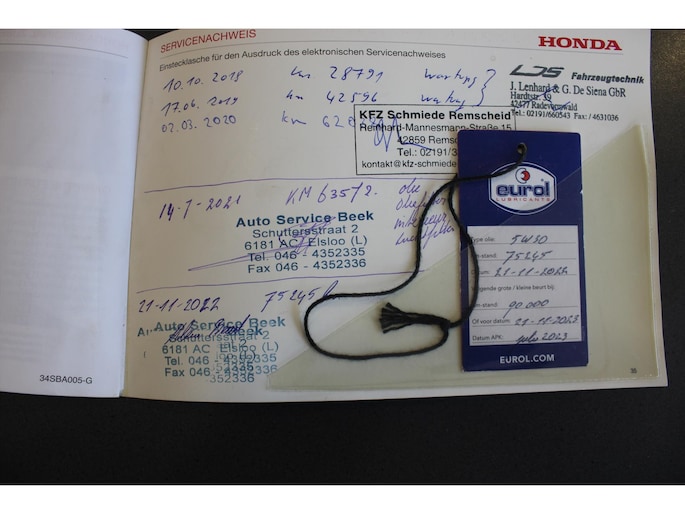 SERVICENACHWEIS
HONDA
Einstecklasche für den Ausdruck des elektronischen Servicenachweises
10.10.2018 km 28791 Wartung
17.06.2019 km 42596 Wartung
02.03.2020 km
LDS Fahrzeugtechnik
J. Lenhard & G. De Siena GbR
Hardtstr. 39
42477 Radevormwald
Tel.: 02191/660543 Fax: / 4631036
KFZ Schmiede Remscheid
Reinhard-Mannesmann-Straße 15
42859 Rems
Tel.: 02191/3
kontakt@kfz-schmiede
14-7-2021 KM 63572.
olie
oliefilter
interieur
luchtfilter
Auto Service Beek
Schuttersstraat 2
6181 AC Elsloo (L)
Tel. 046 - 4352335
Fax 046 - 4352336
21-11-2022 75245
Auto Service Beek
Schuttersstraat 2
6181 AC Elsloo (L)
Tel. 046 - 4352335
Fax 046 - 4352336
352336
eurol
LUBRICANTS
Type olie: 5W30
Km-stand: 75245
Datum: 21-11-2022
Volgende grote / kleine beurt bij
Km-stand: 90.000
Of voor datum: 21-11-2023
Datum APK: 2023
EUROL.COM
34SBA005-G